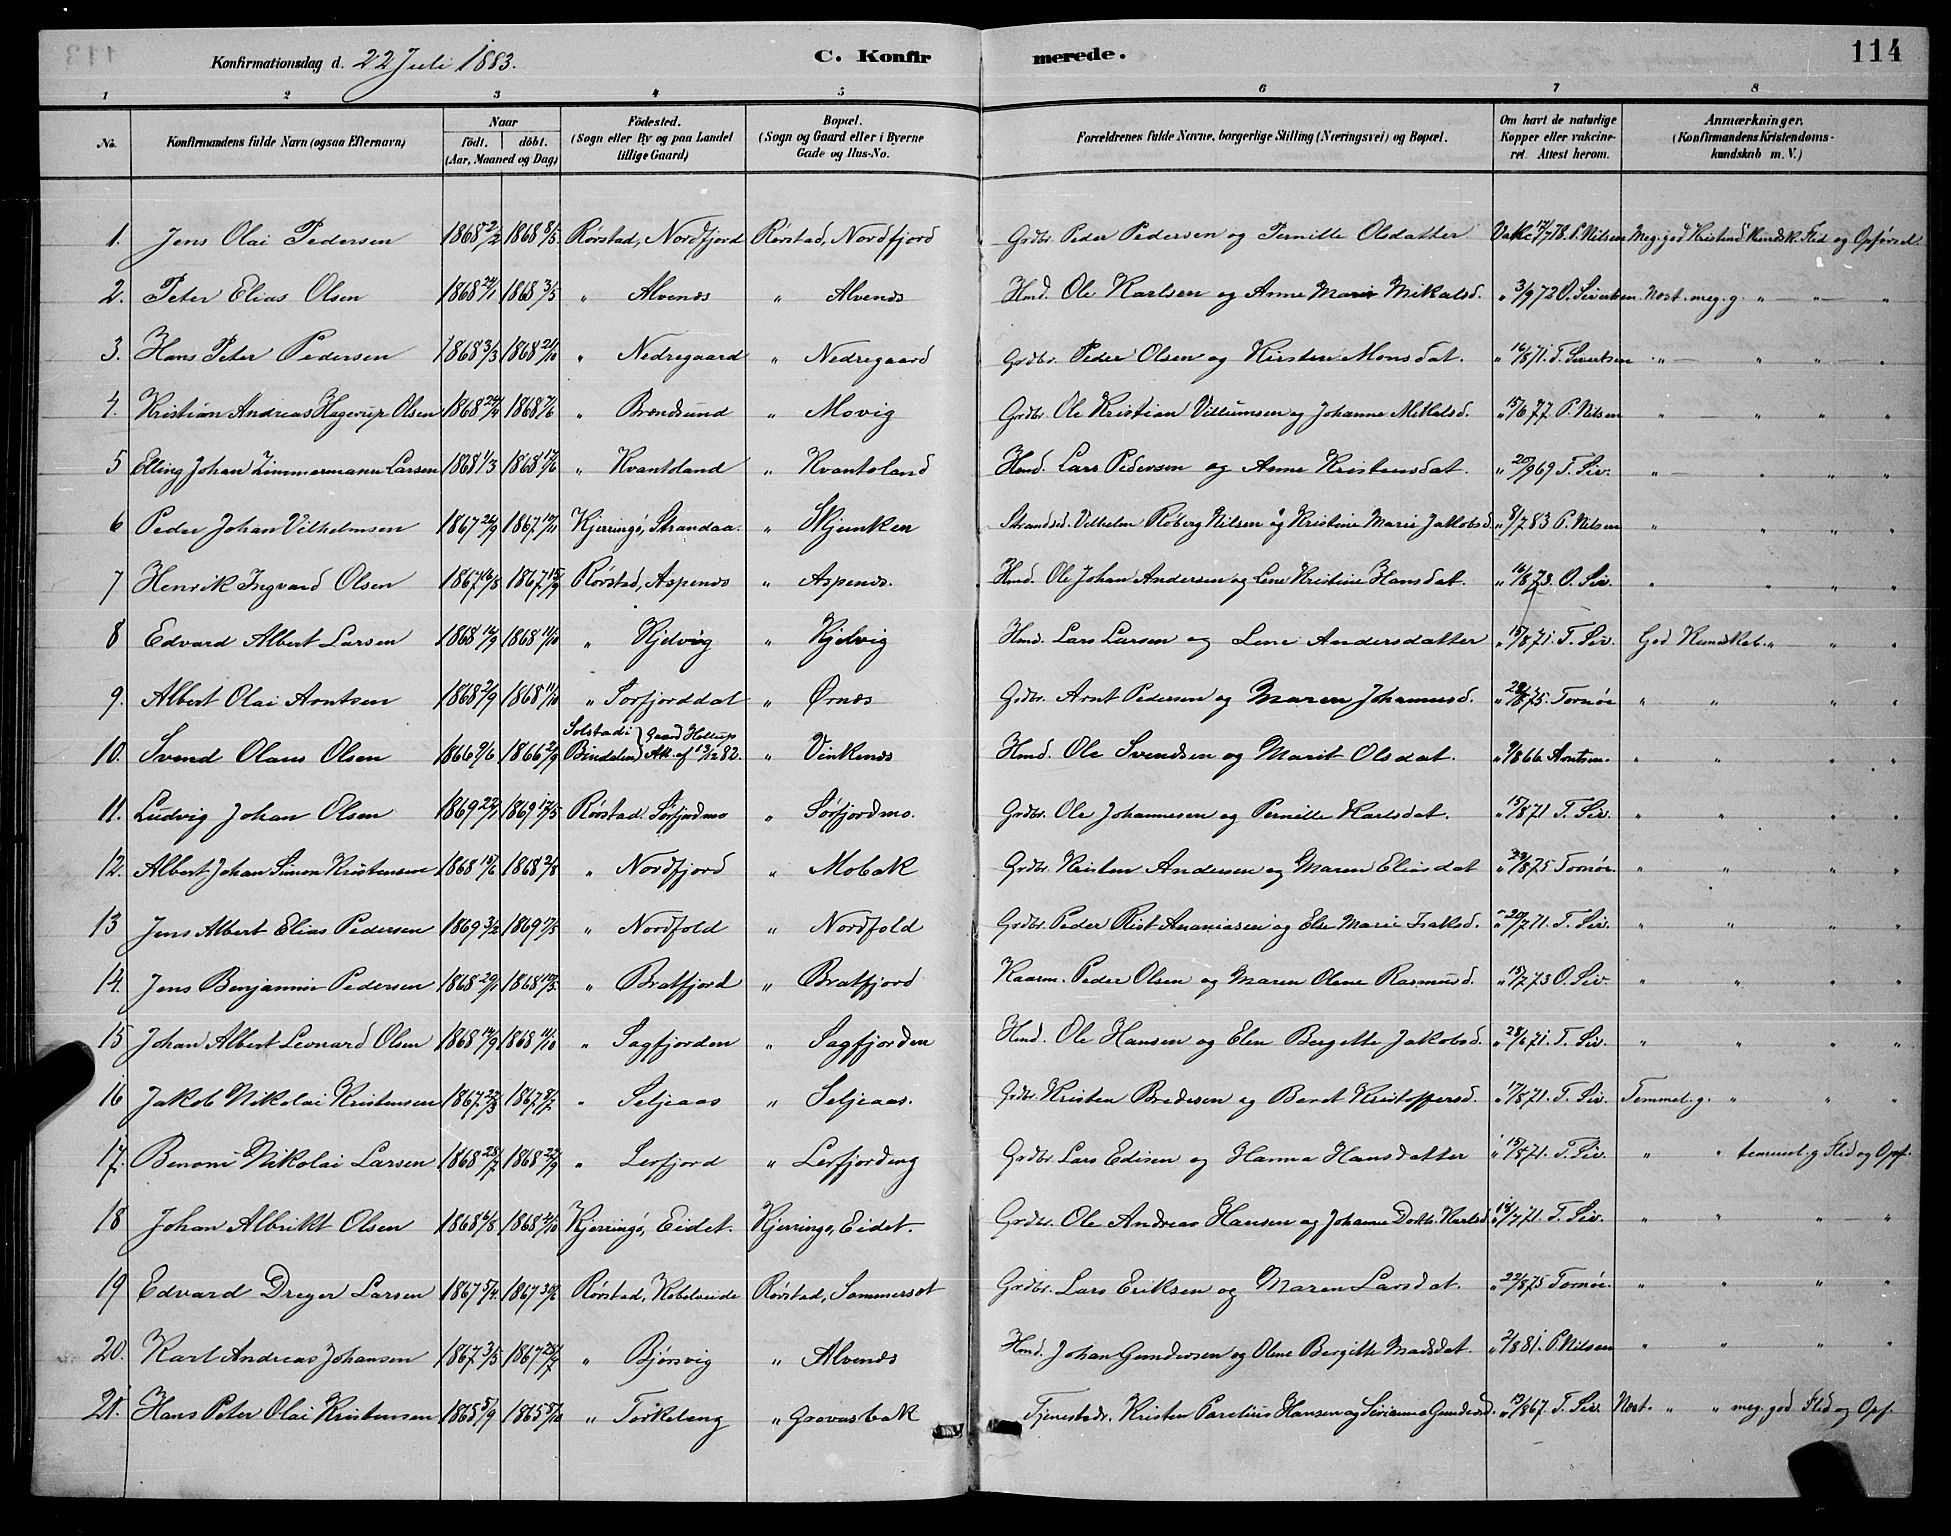 113
Konfirmationsdag d. 22 Juli 1883.
C. Konfirmerede.
114
1 2 3 4 5 6 7 8
No. Konfirmandens fulde Navn (ogsaa Efternavn) Naar født. døbt. (Aar, Maaned og Dag) Fødested. (Sogn eller By og paa Landet tillige Gaard) Bopæl. (Sogn og Gaard eller i Byerne Gade og Hus-No. Forældrenes fulde Navne, borgerlige Stilling (Næringsvei) og Bopæl. Om havt de naturlige Kopper eller vakcineret. Attest herom. Anmærkninger, (Konfirmandens Kristendomskundskab m. V.)
1. Jens Olai Pedersen 1868 2/2 1868 8/5 Rørstad, Nordfjord Rørstad, Nordfjord Grdbr. Peder Pedersen og Pernille Olsdatter Vakc 17/7 78. P. Nilsen Meg. god Kristend. kundsk. Flid og Opførsel
2. Peter Elias Olsen 1868 24/1 1868 3/5 " Alvenæs " Alvenæs Hmd. Ole Karlsen og Anne Marie Mikalsd. " 3/9 72 O. Sivertsen Nost. meg. g. " " "
3. Hans Peter Pedersen 1868 3/3 1868 21/10 " Nedregaard " Nedregaard Grdbr. Peder Olsen og Kirsten Monsdat. " 16/8 71. T. Sivertsen " " " "
4. Kristian Andreas Hagerup Olsen 1868 24/4 1868 7/6 " Brændsund " Movig Grdbr. Ole Kristian Villumsen og Johanna Mikalsd. " 15/6 77 P. Nilsen " " " "
5 Elling Johan Zimmermann Larsen 1868 1/3 1868 17/6 " Kvantoland " Kvantoland Hmd. Lars Pedersen og Anne Kristensdat. " 20/9 69 T. Siv. " " " "
6 Peder Johan Vilhelmsen 1867 26/9 1867 10/11 Kjerringø, Strandaa. " Skjunken Strandsid. Vilhelm Røberg Nilsen og Kristine Marie Jakobsd. " 8/7 83 P. Nilsen " " " "
7 Henrik Ingvard Olsen 1867 16/8 1867 15/9 Rørstad, Aspenæs " Aspenæs. Hmd. Ole Johan Andersen og Lene Kristine Hansdat. " 16/8 73. O. Siv. " " " "
8 Edvard Albert Larsen 1868 14/9 1868 11/10 " Kjelvig " Kjelvig Hmd. Lars Larsen og Lene Andersdatter " 15/8 71. T. Siv. God Kundskab. " " "
9. Albert Olai Arntsen 1868 2/9 1868 11/10 " Sørfjorddal " Ørnæs Grdbr. Arnt Pedersen og Maren Johannesd. " 28/8 75. Tornøe " " " "
10. Svend Olaus Olsen 1866 9/6 1866 2/9 Solstad i Bindalen Gaard Hollup Att. af 13/12 82. " Vinkenæs Hmd. Ole Svendsen og Marit Olsdat. " 9/8 66. Arntsen. " " " "
11. Ludvig Johan Olsen 1869 22/1 1869 17/5 Rørstad. Sørfjordmo " Sørfjordmo. Grdbr. Ole Johannesen og Pernille Karlsdat. " 15/8 71 T. Siv. " " " "
12. Albert Johan Simon Kristensen 1868 19/6 1868 2/8 " Nordfjord " Mobak Grdbr. Kristen Andersen og Maren Eliasdat " 22/8 75 Tornøe. " " " "
13 Jens Albert Elias Pedersen 1869 3/2 1869 17/5 " Nordfold " Nordfold Grdbr. Peder Rist Ananiasen og Else Marie Isaksd. " 20/7 71. T. Siv. " " " "
14. Jens Benjamin Pedersen 1868 29/1 1868 10/5. " Bratfjord " Bratfjord Kaarm. Peder Olsen og Maren Olene Rasmusd. " 15/7 73 O. Siv. " " " "
15 Johan Albert Leonard Olsen 1868 14/9 1868 11/10 " Sagfjorden " Sagfjorden Hmd. Ole Hansen og Elen Bergitte Jakobsd. " 28/6 71. T. Siv. " " " "
16 Jakob Nikolai Kristensen 1867 22/3 1867 8/7 " Seljeaas " Seljeaas. Grdbr. Kristen Bredesen og Beret Kristoffersd. " 17/8 71. T. Siv. Temmel. g. " " "
17. Benoni Nikolai Larsen 1868 28/7 1868 22/9 " Lerfjord " Lerfjordeng Grdbr. Lars Edisen og Hanna Hansdatter " 19/8 71. T. Siv. " " temmel. g Flid og Opf.
18 Johan Albrikt Olsen 1868 6/8 1868 21/10 Kjerringø, Eidet. Kjerringø, Eidet. Grdbr. Ole Andreas Hansen og Johanna Dorth. Karlsd. " 18/7 71. T. Siv. " " " "
19 Edvard Dreyer Larsen 1867 5/4. 1867 30/6 Rørstad, Kobelveide Rørstad, Sommerset Grdbr. Lars Eriksen og Maren Larsdat. " 22/8 75 Tornøe. " " " "
20. Karl Andreas Johansen 1867 3/5 1867 28/7 " Bjørsvig " Alvenæs Hmd. Johan Gundersen og Olene Bergitte Madsdat. " 2/8 81. P. Nilsen " " " "
21. Hans Peter Olai Kristensen 1865 5/9 1865 8/10 " Tørkeleng " Grovasbak Tjenestedr. Kristen Parelius Hansen og Sirianna Gundersd. " 13/8 67. T. Siv. Nost. " " meg. god Flid og Opf.